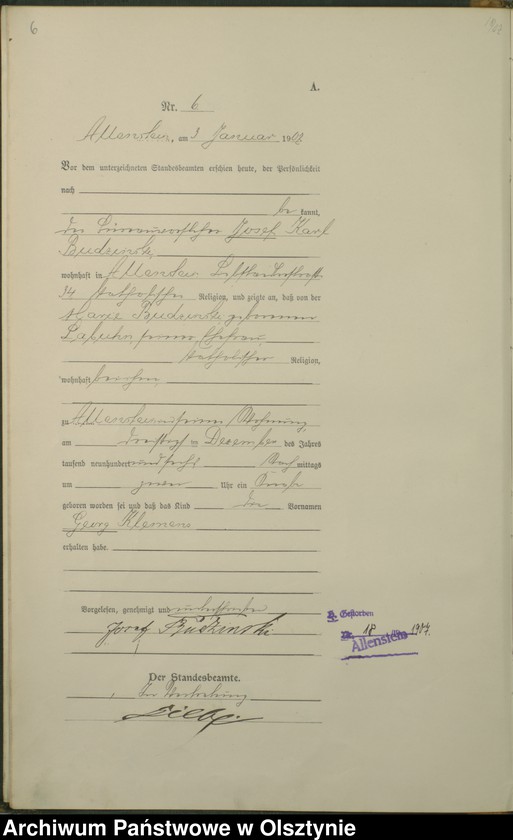 6
A.
Nr. 6
Allenstein, am 3 Januar 1907
Vor dem unterzeichneten Standesbeamten erschien heute, der Persönlichkeit
nach
be kannt,
der Josef Karl
Budzinski
wohnhaft in Allenstein
34 katholischer Religion, und zeigte an, daß von der
Marie Budzinski geborenen
seiner Ehefrau,
katholischer Religion,
wohnhaft bei ihm,
zu Allenstein in seiner Wohnung,
am Dezember des Jahres
tausend neunhundert und sechs Nach mittags
um zwei Uhr ein Knabe
geboren worden sei und daß das Kind die Vornamen
Georg Klemens
erhalten habe.
Vorgelesen, genehmigt und unterschrieben
Josef Budzinski
Der Standesbeamte.
In Vertretung
Gestorben
Nr. 18 1907.
Allenstein
Archiwum Państwowe w Olsztynie